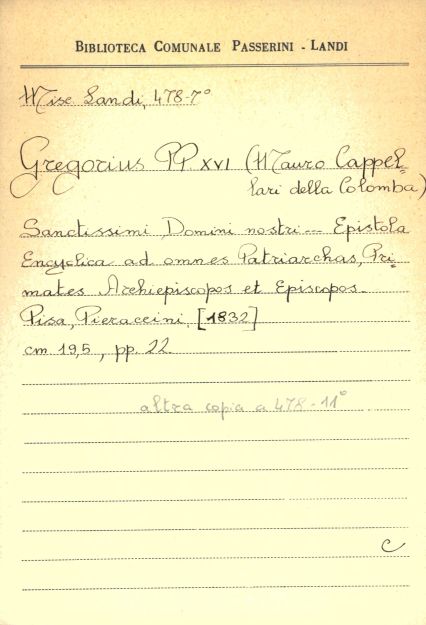 BIBLIOTECA COMUNALE PASSERINI - LANDI
Misc Landi, 478-7°
Gregorius PP. XVI (Mauro Cappel=
lari della Colomba)
Sanctissimi Domini nostri --- Epistola
Encyclica ad omnes Patriarchas, Pri=
mates Archiepiscopos et Episcopos.
Pisa, Pieraccini, [1832]
cm 19,5, pp. 22
altra copia a 478-11°
C